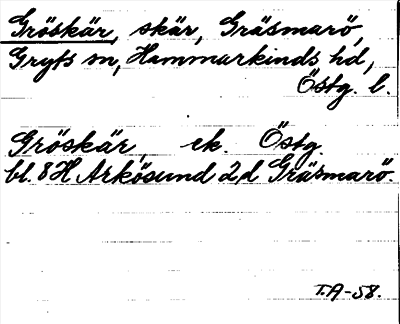 Gröskär, skär, Gräsmarö,
Gryts sn, Hammarkinds hd,
Östg. l.
Gröskär, ek. Östg.
bl. 8H Arkösund 2d Gräsmarö.
T.A-58.